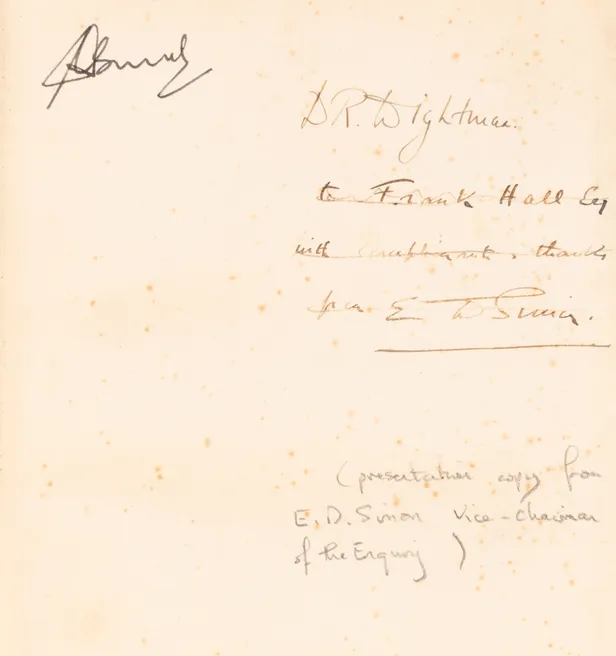 D R. Wightman.
to Frank Hall Esq
with compliments & thanks
from E D Simon.
(presentation copy from
E. D. Simon Vice-Chairman
of the Enquiry)